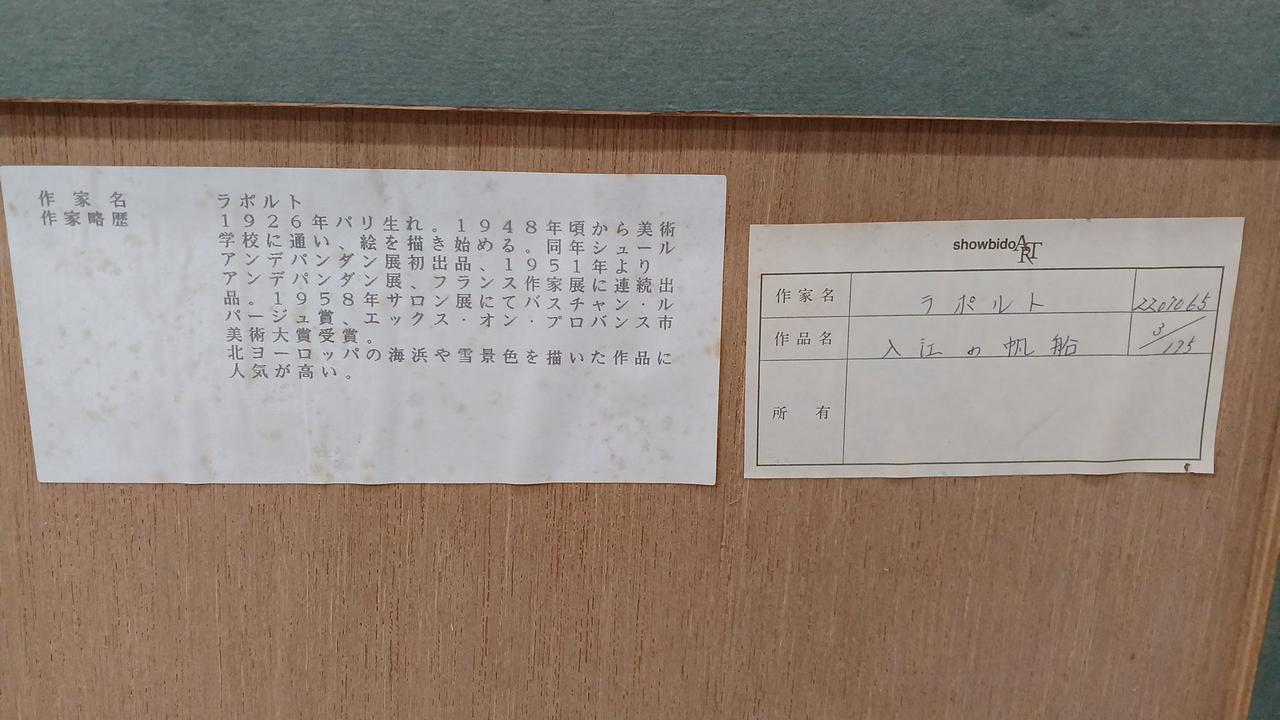 作家名 ラポルト
作家略歴 1926年パリ生れ。1948年頃から美術
学校に通い、絵を描き始める。同年シュール
アンデパンダン展初出品、1951年より
アンデパンダン展、フランス作家展に連続出
品。1958年サロン展にてバスチャン・ル
パージュ賞、エックス・オン・プロバンス市
美術大賞受賞。
北ヨーロッパの海浜や雪景色を描いた作品に
人気が高い。
showbido ART
作家名 ラポルト 2207065
作品名 入江の帆船 3/175
所有